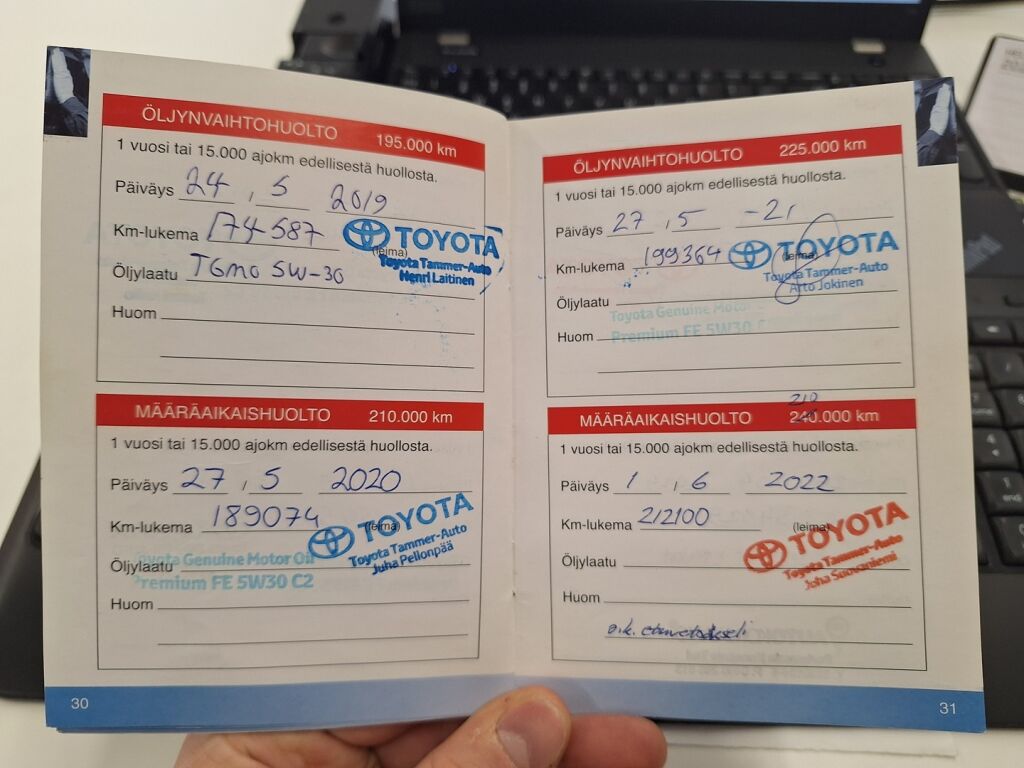 ÖLJYNVAIHTOHUOLTO 195.000 km
1 vuosi tai 15.000 ajokm edellisestä huollosta.
Päiväys 24 , 5 2019
Km-lukema 174587
(leima)
TOYOTA
Toyota Tammer-Auto
Henri Laitinen
Öljylaatu TGMO 5W-30
Huom
MÄÄRÄAIKAISHUOLTO 210.000 km
1 vuosi tai 15.000 ajokm edellisestä huollosta.
Päiväys 27 , 5 2020
Km-lukema 189074
(leima)
TOYOTA
Toyota Tammer-Auto
Juha Pellonpää
Öljylaatu
Toyota Genuine Motor Oil
Premium FE 5W30 C2
Huom
30
ÖLJYNVAIHTOHUOLTO 225.000 km
1 vuosi tai 15.000 ajokm edellisestä huollosta.
Päiväys 27 , 5 -21
Km-lukema 199364
(leima)
TOYOTA
Toyota Tammer-Auto
Arto Jokinen
Öljylaatu
Toyota Genuine Motor
Premium FE 5W30
Huom
210
MÄÄRÄAIKAISHUOLTO 240.000 km
1 vuosi tai 15.000 ajokm edellisestä huollosta.
Päiväys 1 , 6 2022
Km-lukema 212100
(leima)
TOYOTA
Toyota Tammer-Auto
Juha
Öljylaatu
Huom
oik.
31